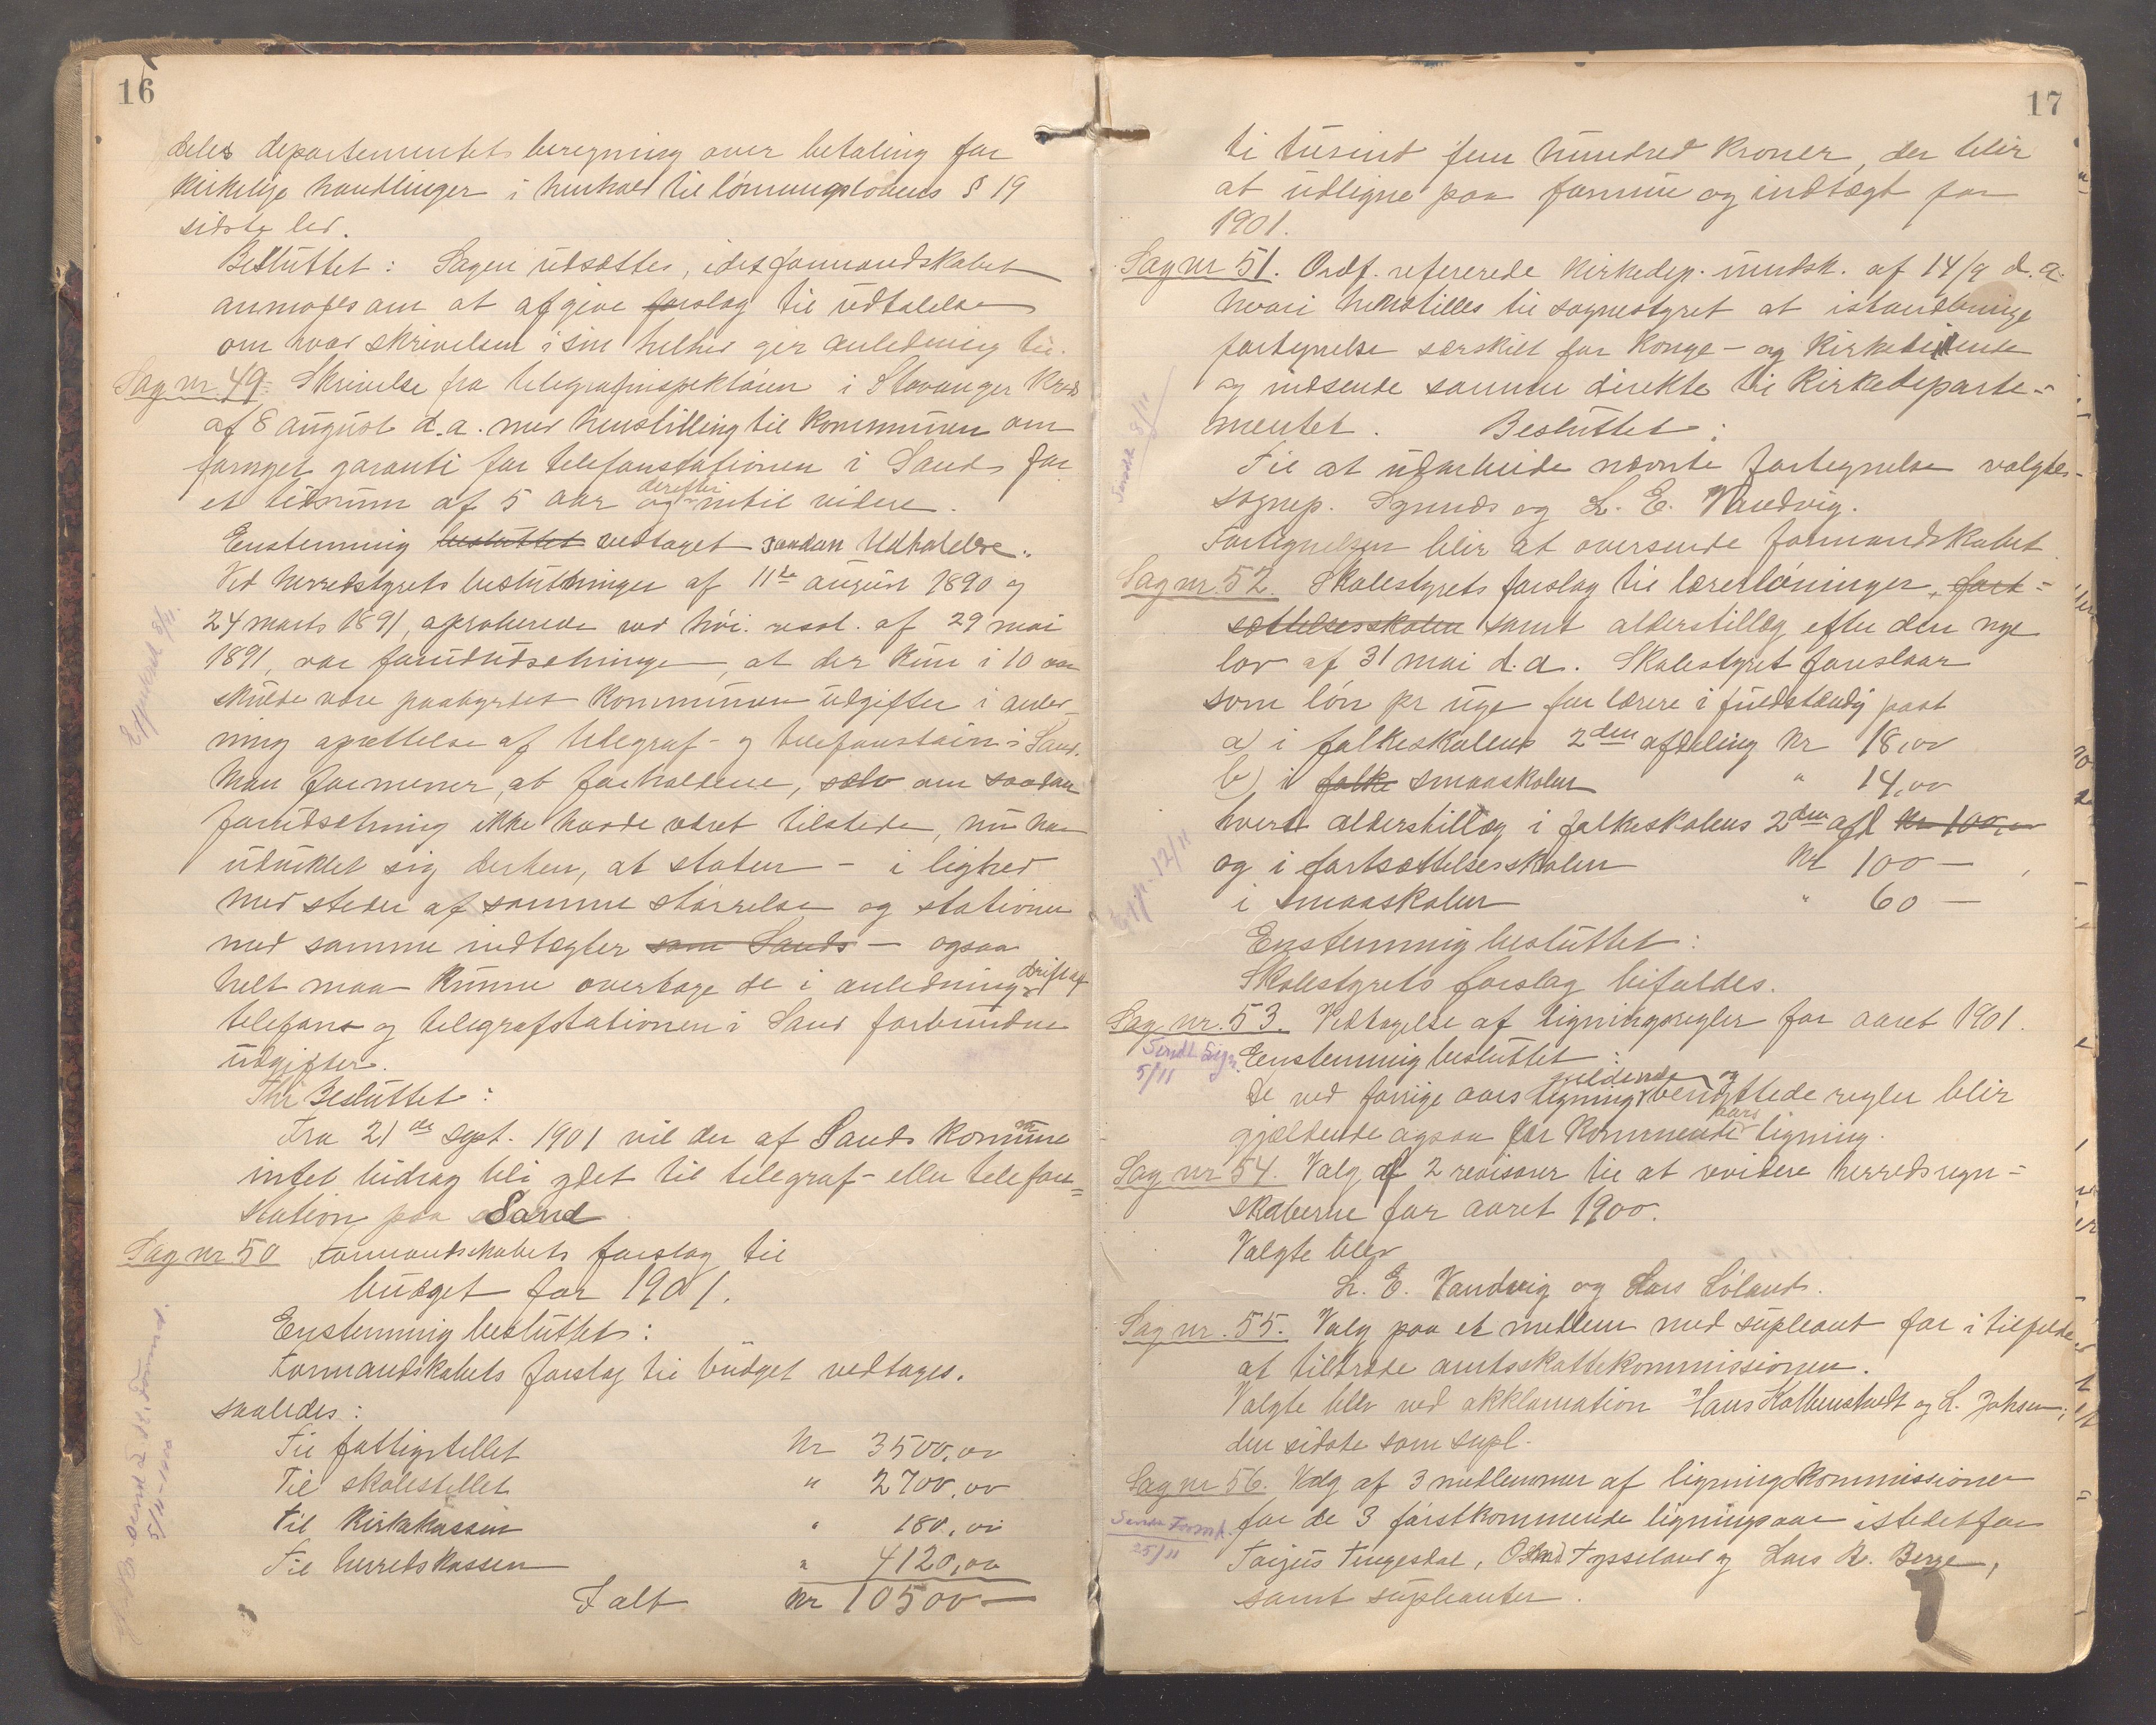 16
deles departementets beregning over betaling for
kirkelige handlinger i henhold til lønningslovens § 19
sidste led.
Besluttet: Sagen udsættes, idet formandskabet
anmodes om at afgive forslag til udtalelse
om hvad skrivelsen i sin helhed gir anledning til.
Sag nr. 49. Skrivelse fra telegrafinspektøren i Stavanger kreds
af 8 august d.a. med henstilling til kommunen om
fornyet garanti for telefonstationen i Sand for
et tidsrum af 5 aar og derefter indtil videre.
Enstemmig besluttet vedtaget saadan Udtalelse:
Ved herredstyrets beslutninger af 11te august 1890 og
24 marts 1891, approberede ved høi. resol. af 29 mai
1891, var forudsætningen, at der kun i 10 aar
skulde være paabyrdet kommunen udgifter i anled-
ning oprettelse af telegraf- og telefonstation i Sand.
Man formener, at forholdene, selv om saadan
forudsætning ikke havde været tilstede, nu har
udviklet sig derhen, at staten – i lighed
med steder af samme størrelse og stationer
med samme indtægter som Sands – ogsaa
helt maa kunne overtage de i anledning drift af
telefon og telegrafstationen i Sand forbundne
udgifter.
Thi Besluttet:
Fra 21de sept. 1901 vil der af Sands kommune
intet bidrag bli ydet til telegraf- eller telefon-
station paa Sand
Sag nr. 50 Formandskabets forslag til
budget for 1901.
Enstemmig besluttet:
Formandskabets forslag til budget vedtages.
saaledes:
Til fattigstellet Kr 3500,00
Til skolestellet " 2700,00
Til Kirkekassen " 180,00
Til herredskassen " 4120,00
Ialt Kr 10500 –
Expederet 5/11.
17
ti tusind fem hundred kroner, der blir
at udligne paa formue og indtægt for
1901.
Sag nr 51. Ordf. refererede Kirkedep. rundsk. af 14/9 d.a.
hvori henstilles til sognestyret at istandbringe
fortegnelse særskilt for Konge- og Kirketiende
og indsende samme direkte til Kirkedeparte-
mentet. Besluttet:
Til at udarbeide nævnte fortegnelse valgtes
sognep. Synnes og L. E. Vandvig.
Fortegnelsen blir at oversende formandskabet.
Sag nr. 52. Skolestyrets forslag til lærerlønninger, fort-
sættelsesskolen samt alderstillæg efter den nye
lov af 31 mai d.a. Skolestyret foreslaar
som løn pr uge for lærere i fuldstændig post
a) i folkeskolens 2den afdeling Kr 18,00
b) i folke smaaskolen " 14,00
hvert alderstillæg i folkeskolens 2den afd Kr 100,00
og i fortsættelsesskolen Kr 100 –
i smaaskolen " 60 –
Enstemmig besluttet:
Skolestyrets forslag bifaldes.
Sag nr. 53. Vedtagelse af ligningsregler for aaret 1901.
Sendt Lign. 5/11
Enstemmig besluttet:
De ved forrige aars ligning gjeldende og benyttede regler blir
gjældende ogsaa for kommende aars ligning.
Sag nr 54. Valg af 2 revisorer til at revidere herredsregn-
skaberne for aaret 1900.
Valgte blev
L. E. Vandvig og Lars Løland.
Sag nr. 55. Valg paa et medlem med supleant for i tilfælde
at tiltræde amtsskattekommissionen.
Valgte blev ved akklamation Hans Kolbenstvedt og L. Johsen,
den sidste som supl.
Sag nr 56. Valg af 3 medlemmer af ligningskommissionen
for de 3 førstkommende ligningsaar istedetfor
Tarjus Tengesdal, Osmd Tysseland og Lars R. Berge,
samt supleanter.
Sendt 5/11
Exp. 12/11
Sendt Formd. 25/11